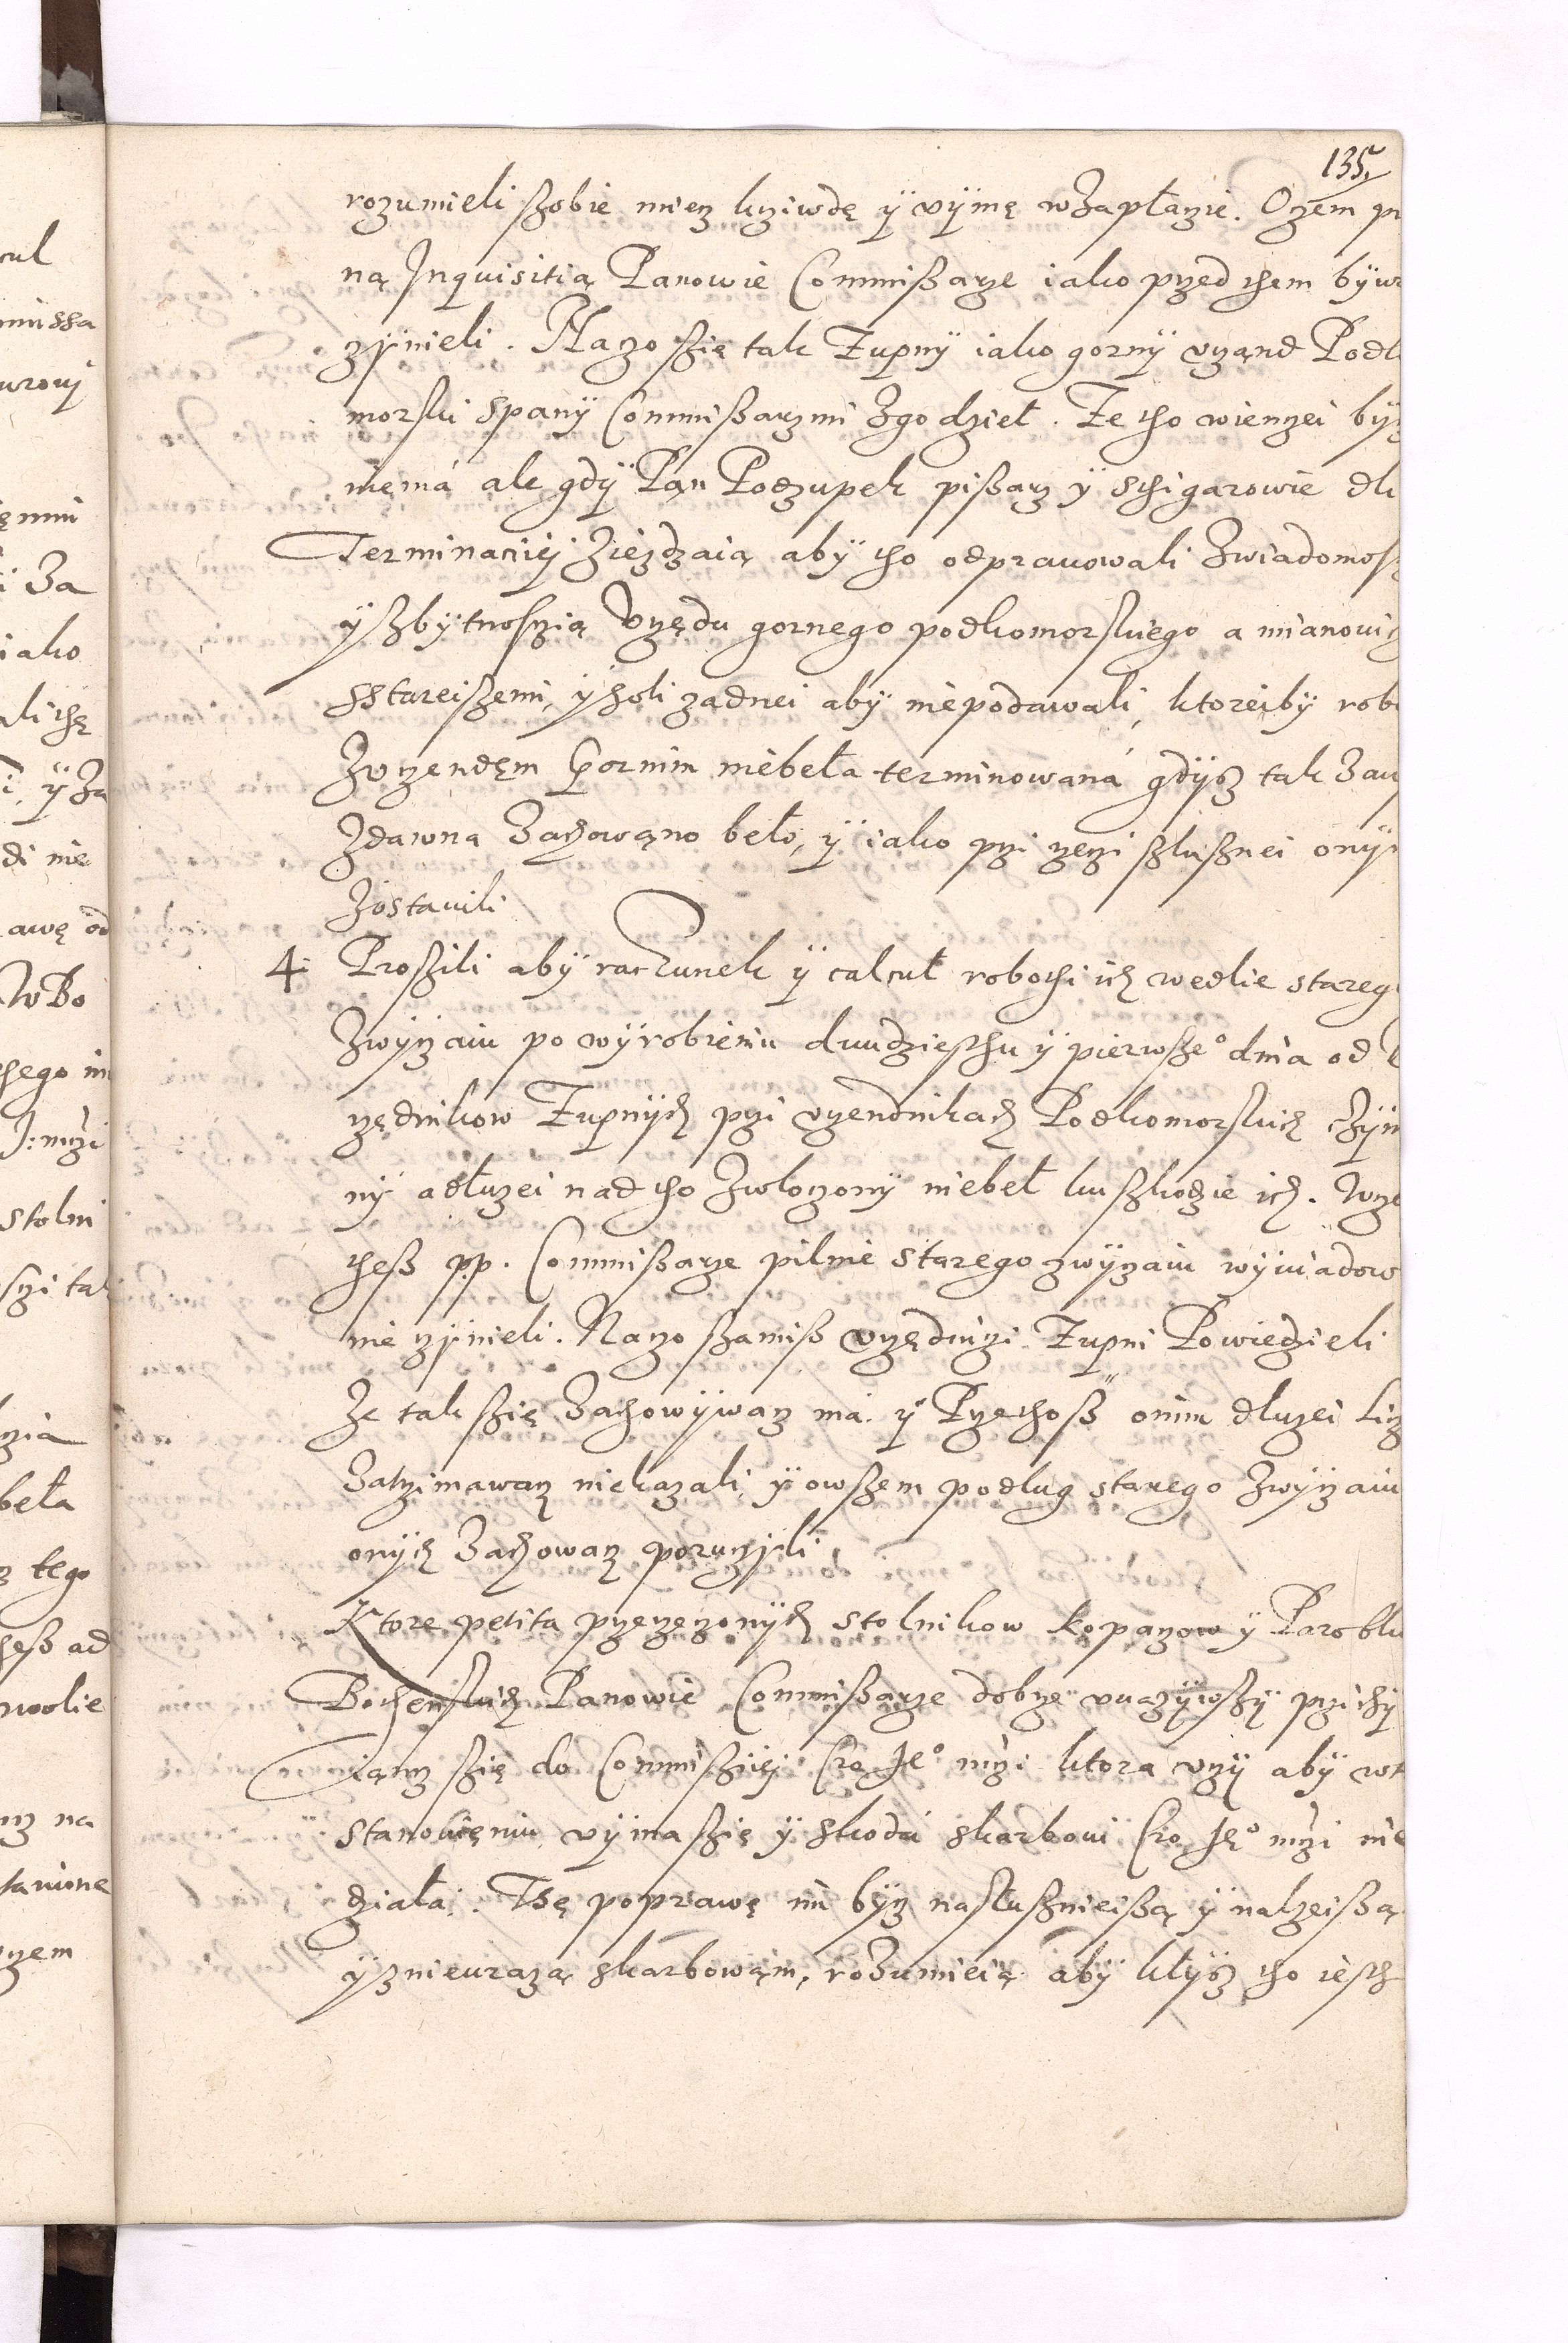 135
rozumieli sżobie miecz krziwdę ÿ vÿmę wZapłaczie. Oczem pr
ną Inquisitią Panowie Commißarze iako przed them bÿw
czÿnieli. Naczo sżię tak Żupnÿ iako gornÿ vrząnd Podk
morski spanÿ Commißarzmi Zgodzieł. Że tho wienczei bÿcz
niema ale gdÿ Pan Podzupek pißarz ÿ Schigarowie dk
Terminaciÿ Zieżdzaią abÿ tho odprauowali Zwiadomosz
ÿ Zbÿtnosczią Vrzędu gornego podkomorskiego a mianouicz
Sstareiszemi, ÿ sholi zadnei abÿ niepodawali, ktoreibÿ rob
Zvrzendęm Gornim niebeła terminowana gdÿsz tak Zau
Zdawna Zachowąno beło, ÿ iako przi rzeczi słusznei onÿ
Zostauili
4 Proszili abÿ rachunek ÿ calcuł robothi ich wedlie stareg
Zwÿczaiu po wÿrobieniu dwudziesthu ÿ pierwsze° dnia od V
rzędnikow Żupnÿch przi vrzendnikach Podkomorskich czÿn
nÿ adłuzei nad tho Zwloczonÿ niebeł ku szkodzie ich. Wcze
theß pp. Commißarze pilnie starego zwÿczaiu wÿwiadow
nie czÿnieli. Naczo szamiß vrzędniczi Żupni Powiedzieli
Że tak szię Zachowÿwacz ma. ÿ Przethoß onim dluzei licz
Zatrzimawacz niekazali, ÿ owszem podlug starego Zwÿczaiu
onÿch Zachowacz poruczÿli
Ktore petita przerzeczonÿch stolnikow kopaczow ÿ Parobk
Bochenskich Panowie Commißarze dobrze vuazÿwszÿ przichÿ
laiącz szię do Commisziÿ Cro Je° mczi ktora vczÿ abÿ wt
stanowieniu vÿma szię ÿ skoda skarboui Cro Je° mczi nie
działa. Thę poprawę im bÿcz nasłusznieißą ÿ nalzeißą
ÿ znieurazą skarbowąm, roZumieią abÿ kłÿsz tho iesth